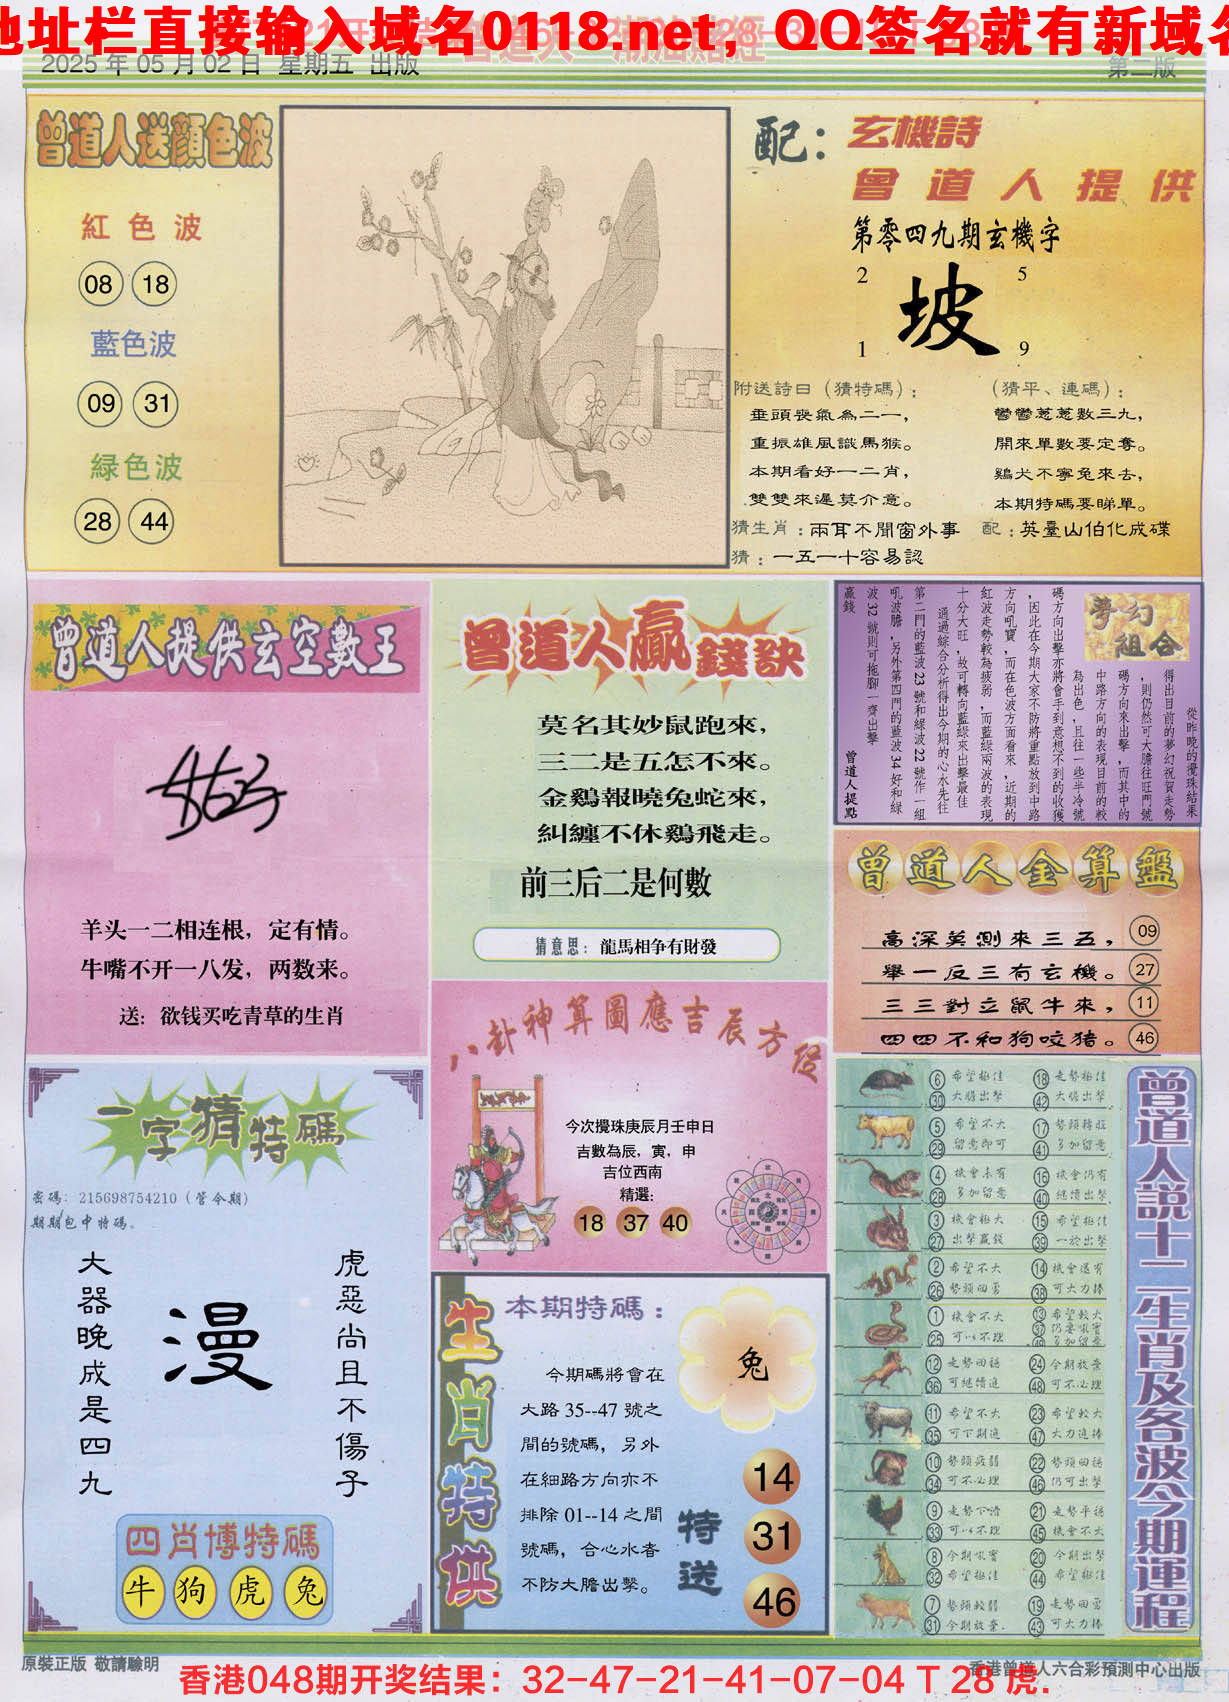 地址栏直接输入域名0118.net，QQ签名就有新域名
2025 年 05 月 02 日  星期五  出版
第二版
曾道人送顏色波
紅色波
08 18
藍色波
09 31
緑色波
28 44
配：
玄機詩
曾道人提供
第零四九期玄機字
2 5
坡
1 9
附送詩曰（猜特碼）：
垂頭喪氣為二一，
重振雄風識馬猴。
本期看好一二肖，
雙雙來遲莫介意。
（猜平、連碼）：
鬱鬱蔥蔥數三九，
開來單數要定奪。
鷄犬不寧兔來去，
本期特碼要睇單。
猜生肖：兩耳不聞窗外事
配：英臺山伯化成碟
猜：一五一十容易認
曾道人提供玄空數王
羊头一二相连根，定有情。
牛嘴不开一八发，两数来。
送：欲钱买吃青草的生肖
曾道人贏錢訣
莫名其妙鼠跑來，
三二是五怎不來。
金鷄報曉兔蛇來，
糾纏不休鷄飛走。
前三后二是何數
猜意思：龍馬相争有財發
夢幻組合
從昨晚的攪珠結果
得出目前的夢幻祝賀走勢
，則仍然可大膽往旺門號
碼方向來出擊，而其中的
中路方向的表現目前的較
為出色，且往一些半冷號
碼方向出擊亦將會手到意想不到的收獲
，因此在今期大家不防將重點放到中路
方向吼寶，而在色波方面看來，近期的
紅波走勢較為疲弱，而藍綠兩波的表現
十分大旺，故可轉向藍綠來出擊最佳
通過綜合分析得出今期的心水先往
第二門的藍波 23 號和綠波 22 號作一組
吼波膽，另外第四門的藍波 34 好和綠
波 32 號則可拖腳一齊出擊
贏錢
曾道人提點
曾道人金算盤
高深莫測來三五， 09
舉一反三有玄機。 27
三三對立鼠牛來， 11
四四不和狗咬猪。 46
八卦神算圖應吉辰方位
今次攪珠庚辰月壬申日
吉數為辰，寅，申
吉位西南
精選：
18 37 40
一字猜特碼
密碼：215698754210（管令期）
期期包中特碼。
大器晚成是四九
漫
虎惡尚且不傷子
四肖博特碼
牛 狗 虎 兔
生肖特供
本期特碼：
兔
今期碼將會在
大路 35--47 號之
間的號碼，另外
在細路方向亦不
排除 01--14 之間
號碼，合心水者
不防大膽出擊。
特送
14
31
46
曾道人説十二生肖及各波今期運程
6 希望極佳 18 走勢極佳
30 大膽出擊 42 大膽出擊
5 希望不大 17 勢頭轉旺
29 留意即可 41 多加留意
4 機會未有 16 機會仍有
28 多加留意 40 繼續出擊
3 機會極大 15 希望極佳
27 出擊贏錢 39 一於出擊
2 希望不大 14 機會還有
26 勢頭回勇 38 可大力捧
1 機會不大 13 希望較大
25 可以不理 37 仍要吼實
49 多加留意
12 走勢回穩 24 今期放棄
36 可繼續追 48 可不必理
11 希望不大 23 希望較大
35 可下期追 47 大力追捧
10 勢頭疲弱 22 勢頭回穩
34 可不必理 46 仍可出擊
9 走勢下滑 21 走勢平穩
33 可以不理 45 機會不大
8 今期吼實 20 今期出擊
32 希望極佳 44 希望極佳
7 勢頭較弱 19 走勢回勇
31 今期放棄. 43 可大力捧
原裝正版 敬請驗明
香港曾道人六合彩預測中心出版
香港048期开奖结果：32-47-21-41-07-04 T 28 虎.